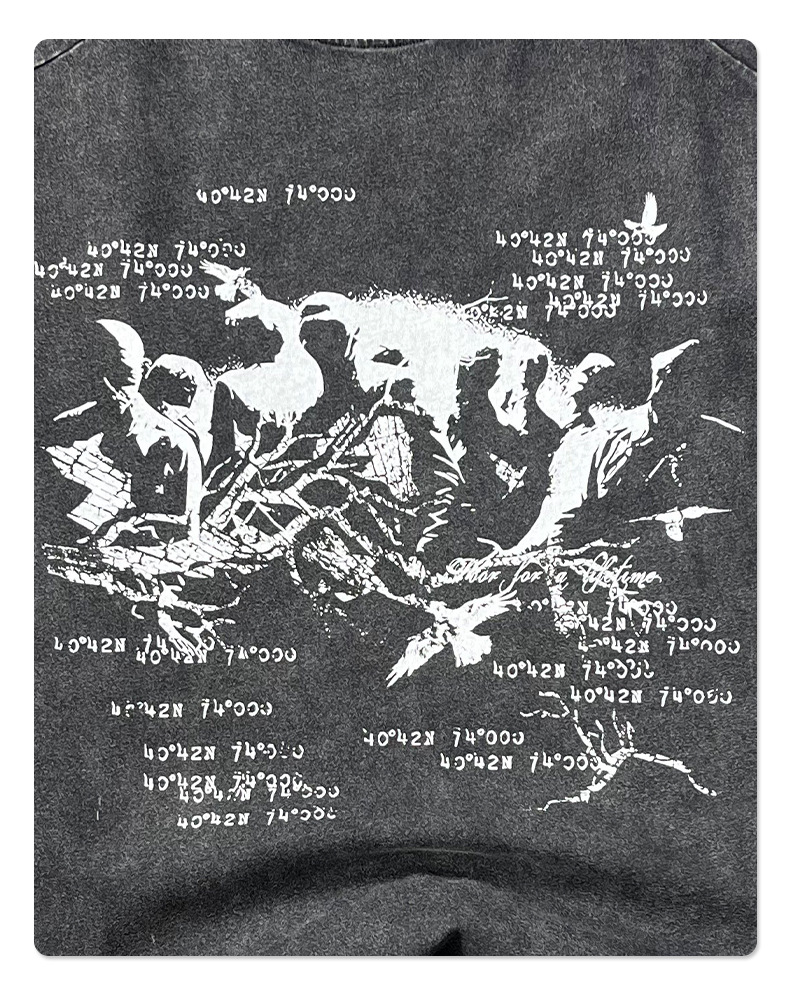 40°42N 74°000
40°42N 74°000
40°42N 74°000
40°42N 74°000
40°42N 74°000
40°42N 74°000
40°42N 74°000
40°42N 74°000
74°000
for a lifetime
74°000
42N 74°000
40°42N
40°42N 74°000
40°42N 74°000
40°42N 74°000
40°42N 74°000
40°42N 74°000
40°42N 74°000
40°42N 74°000
40°42N 74°000
40°42N 74°000
40°42N 74°000
40°42N 74°000